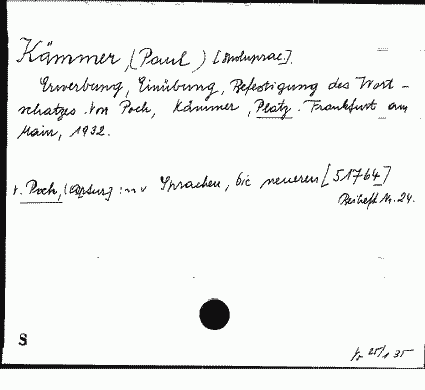 Kämmer, (Paul)
Erwerbung, Einübung, Befestigung des Wort-
schatzes. Von Poch, Kämmer, Platz. Frankfurt am
Main, 1932.
v. Poch, : Sprachen, die neueren [51764]
Beiheft Nr. 24.
S
25/1 35